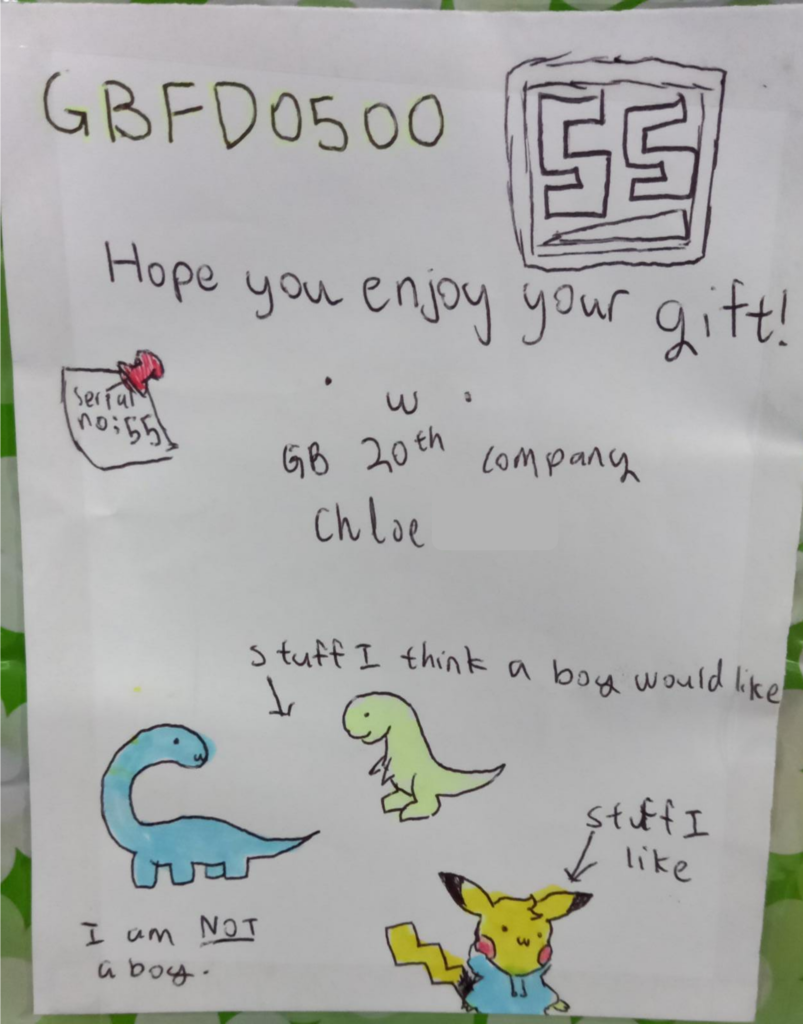 GBFD0500
55
Hope you enjoy your gift!
serial
no:55
. w .
GB 20th company
Chloe
stuff I think a boy would like
stuff I
like
I am NOT
a boy.